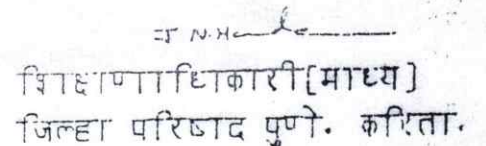 शिक्षणाधिकारी[माध्य]
जिल्हा परिषद पुणे. करिता.